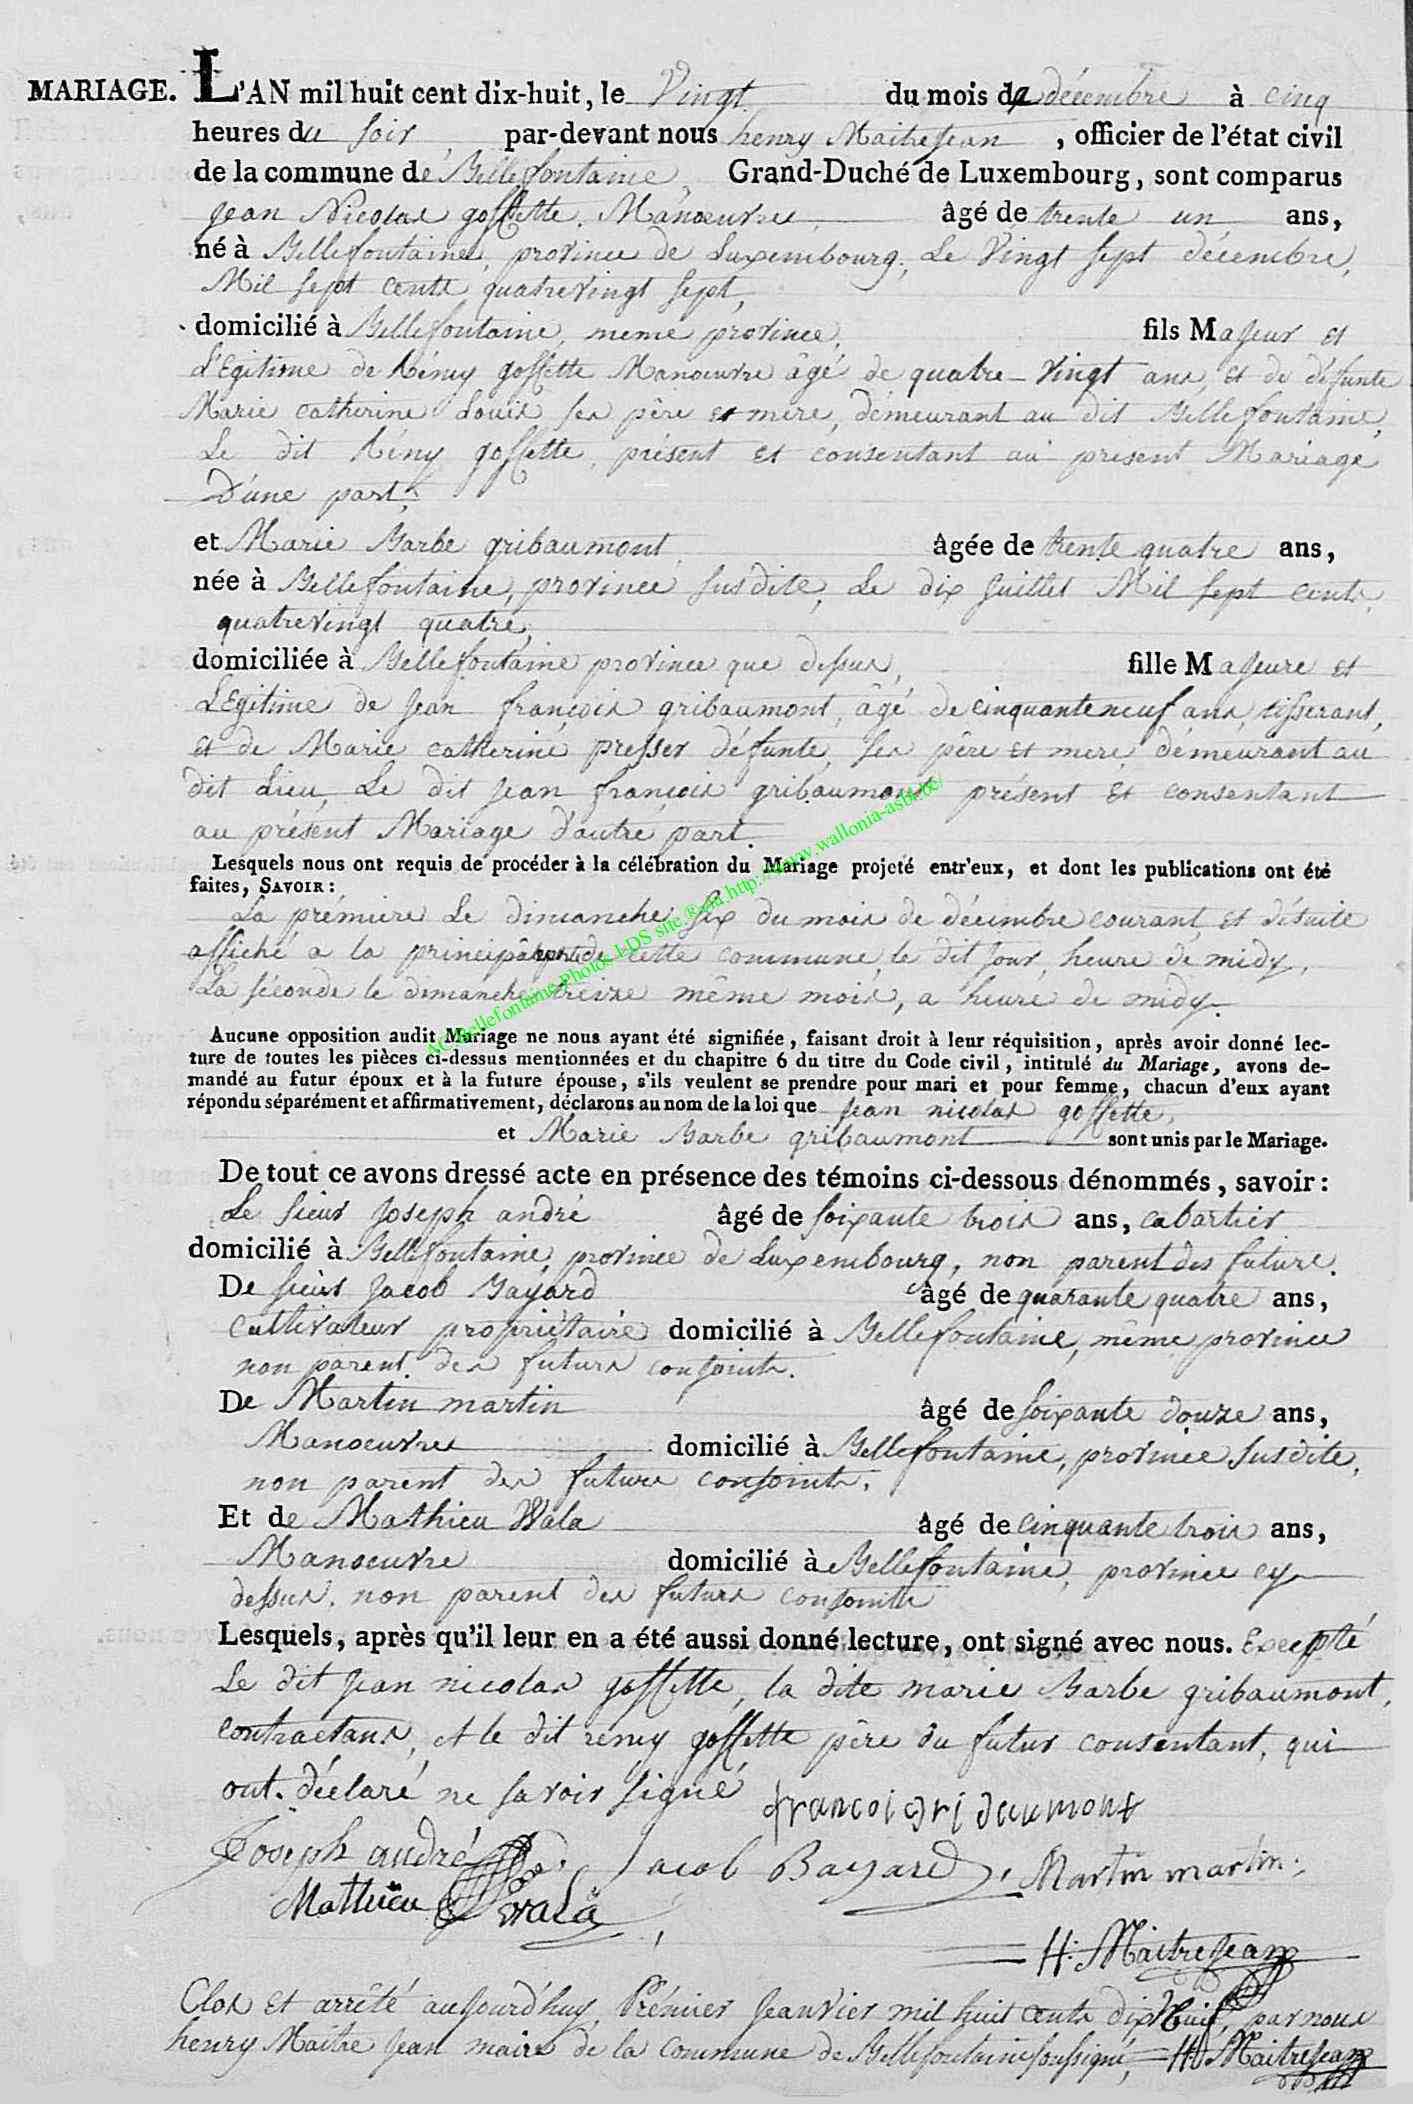 MARIAGE. L'AN mil huit cent dix-huit, le Vingt du mois de décembre à cinq
heures du soir par-devant nous henry MaitreJean, officier de l'état civil
de la commune de Bellefontaine, Grand-Duché de Luxembourg, sont comparus
Jean Nicolas goffette, Manœuvre, âgé de trente un ans,
né à Bellefontaine, province de Luxembourg, Le Vingt sept décembre,
Mil sept cents quatrevingt sept,
domicilié à Bellefontaine, meme province, fils Majeur et
Légitime de Rémy goffette Manœuvre âgé de quatre-Vingt ans, et de défunte
Marie catherine Louis ses père et mère, démeurant au dit Bellefontaine,
Le dit Rémy goffette, présent et consentant au présent Mariage
D'une part;
et Marie Barbe gribaumont âgée de trente quatre ans,
née à Bellefontaine, province susdite, Le dix Juillet Mil sept cents,
quatrevingt quatre,
domiciliée à Bellefontaine province que dessus, fille Majeure et
Légitime de Jean françois gribaumont, âgé de cinquante neuf ans, tisserant,
et de Marie catherine presser défunte, ses père et mère, démeurant au
dit Lieu, Le dit Jean françois gribaumont présent et consentant
au présent Mariage d'autre part.
Lesquels nous ont requis de procéder à la célébration du Mariage projeté entr'eux, et dont les publications ont été
faites, SAVOIR :
La prémière Le dimanche six du mois de décembre courant, et d'suite
affiché a la principâ porte de cette commune, le dit jour, heure de midy,
La séconde le dimanche treize même mois, a heure de midy.
Aucune opposition audit Mariage ne nous ayant été signifiée, faisant droit à leur réquisition, après avoir donné lec-
ture de toutes les pièces ci-dessus mentionnées et du chapitre 6 du titre du Code civil, intitulé du Mariage, avons de-
mandé au futur époux et à la future épouse, s'ils veulent se prendre pour mari et pour femme, chacun d'eux ayant
répondu séparément et affirmativement, déclarons au nom de la loi que Jean nicolas goffette,
et Marie Barbe gribaumont sont unis par le Mariage.
De tout ce avons dressé acte en présence des témoins ci-dessous dénommés, savoir :
Le sieur Joseph andré âgé de soixante trois ans, cabartier
domicilié à Bellefontaine, province de Luxembourg, non parent des future.
De sieur Jacob Bayard âgé de quarante quatre ans,
cultivateur propriétaire domicilié à Bellefontaine, même province
non parent des futurs conjoints.
De Martin martin âgé de soixante douze ans,
Manœuvre domicilié à Bellefontaine, province susdite,
non parent des future conjoints.
Et de Mathieu Wala âgé de cinquante trois ans,
Manœuvre domicilié à Bellefontaine, province cy
dessus, non parent des futurs conjoints
Lesquels, après qu'il leur en a été aussi donné lecture, ont signé avec nous. Excepté
Le dit Jean nicolas goffette, la dite marie Barbe gribaumont,
contractans, et le dit remy goffette père du futur consentant, qui
ont déclaré ne savoir signé
francoi gribaumont
Joseph andré Jacob Bayard, Martin martin
Mathieu Wala
H: MaitreJean
Clos et arrêté aujourd'huy, Prémier Jeanvier mil huit cents dix neuf, par nous
henry Maitre Jean maire de la Commune de Bellefontaine soussigné, H: MaitreJean
AC Bellefontaine Photos I-DS site ® http://www.wallonia-asbl.be/